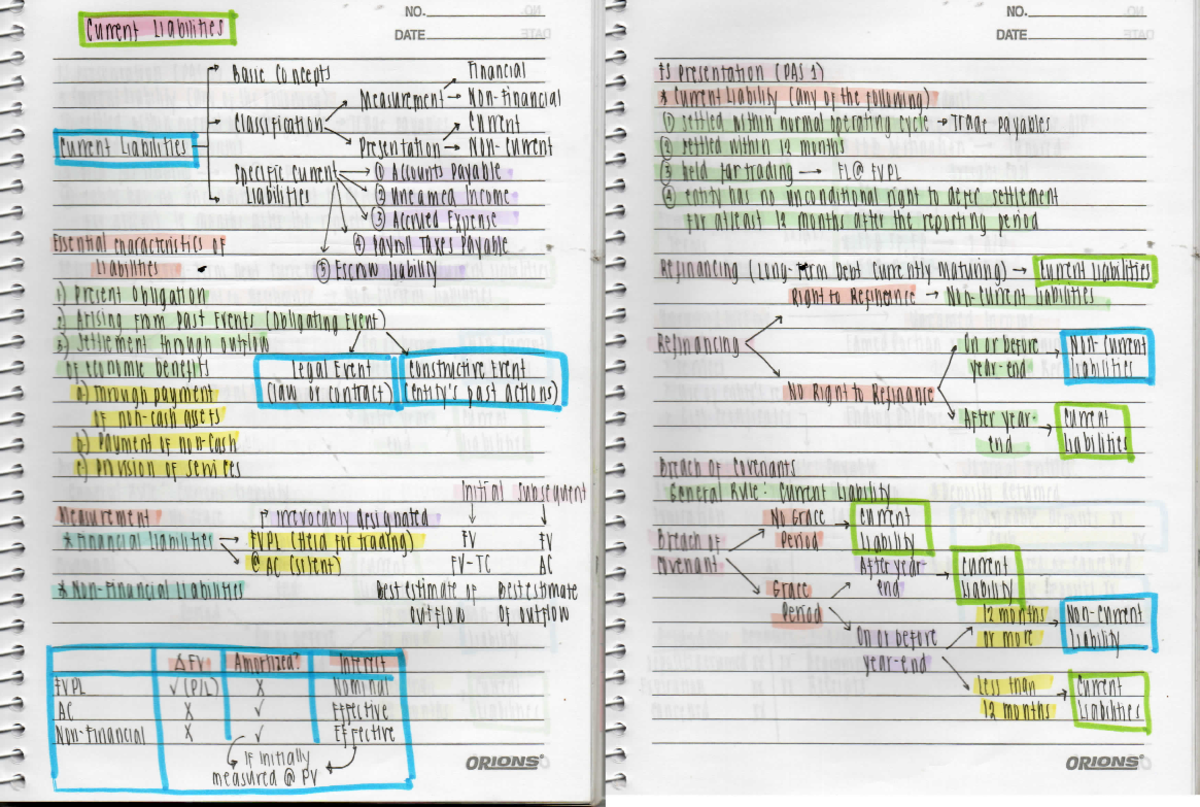 NO.
DATE
Current Liabilities
Basic Concepts
Financial
Measurement → Non-Financial
Classification
Current
Current Liabilities
Presentation → Non-Current
Specific Current
Liabilities
① Accounts Payable
② Unearned Income
③ Accrued Expense
④ Payroll Taxes Payable
⑤ Escrow liability
Essential characteristics of
liabilities
1) Present Obligation
2) Arising from Past Events (Obligating Event)
3) Settlement through outflow
of economic benefits
Legal Event
(law or contract)
Constructive Event
(entity's past actions)
a) Through payment
of non-cash assets
b) Payment of non-cash
c) Provision of services
Initial Subsequent
Measurement
irrevocably designated
* Financial Liabilities
FVPL (Held for trading) FV FV
@ AC (silent) FV-TC AC
* Non-Financial Liabilities
Best estimate of
outflow
Best estimate
of outflow
Δ FV Amortized? Interest
FVPL ✓ (P/L) X Nominal
AC X ✓ Effective
Non-Financial X ✓ Effective
If initially
measured @ PV
ORIONS
NO.
DATE
FS Presentation (PAS 1)
* Current Liability (any of the following)
① settled within normal operating cycle → Trade payables
② settled within 12 months
③ held for trading → FL @ FVPL
④ entity has no unconditional right to defer settlement
for atleast 12 months after the reporting period
Refinancing (Long-Term Debt Currently Maturing) → Current Liabilities
Right to Refinence → Non-Current Liabilities
Refinancing
No Right to Refinance
On or before
year-end
→ Non-Current
Liabilities
After year-
end
→ Current
Liabilities
Breach of Covenants
General Rule: Current Liability
Breach of
Covenant
No Grace
Period
→ Current
Liability
Grace
Period
After year-
end
→ Current
Liability
On or before
year-end
12 months
or more
→ Non-Current
Liability
Less than
12 months
→ Current
Liabilities
ORIONS